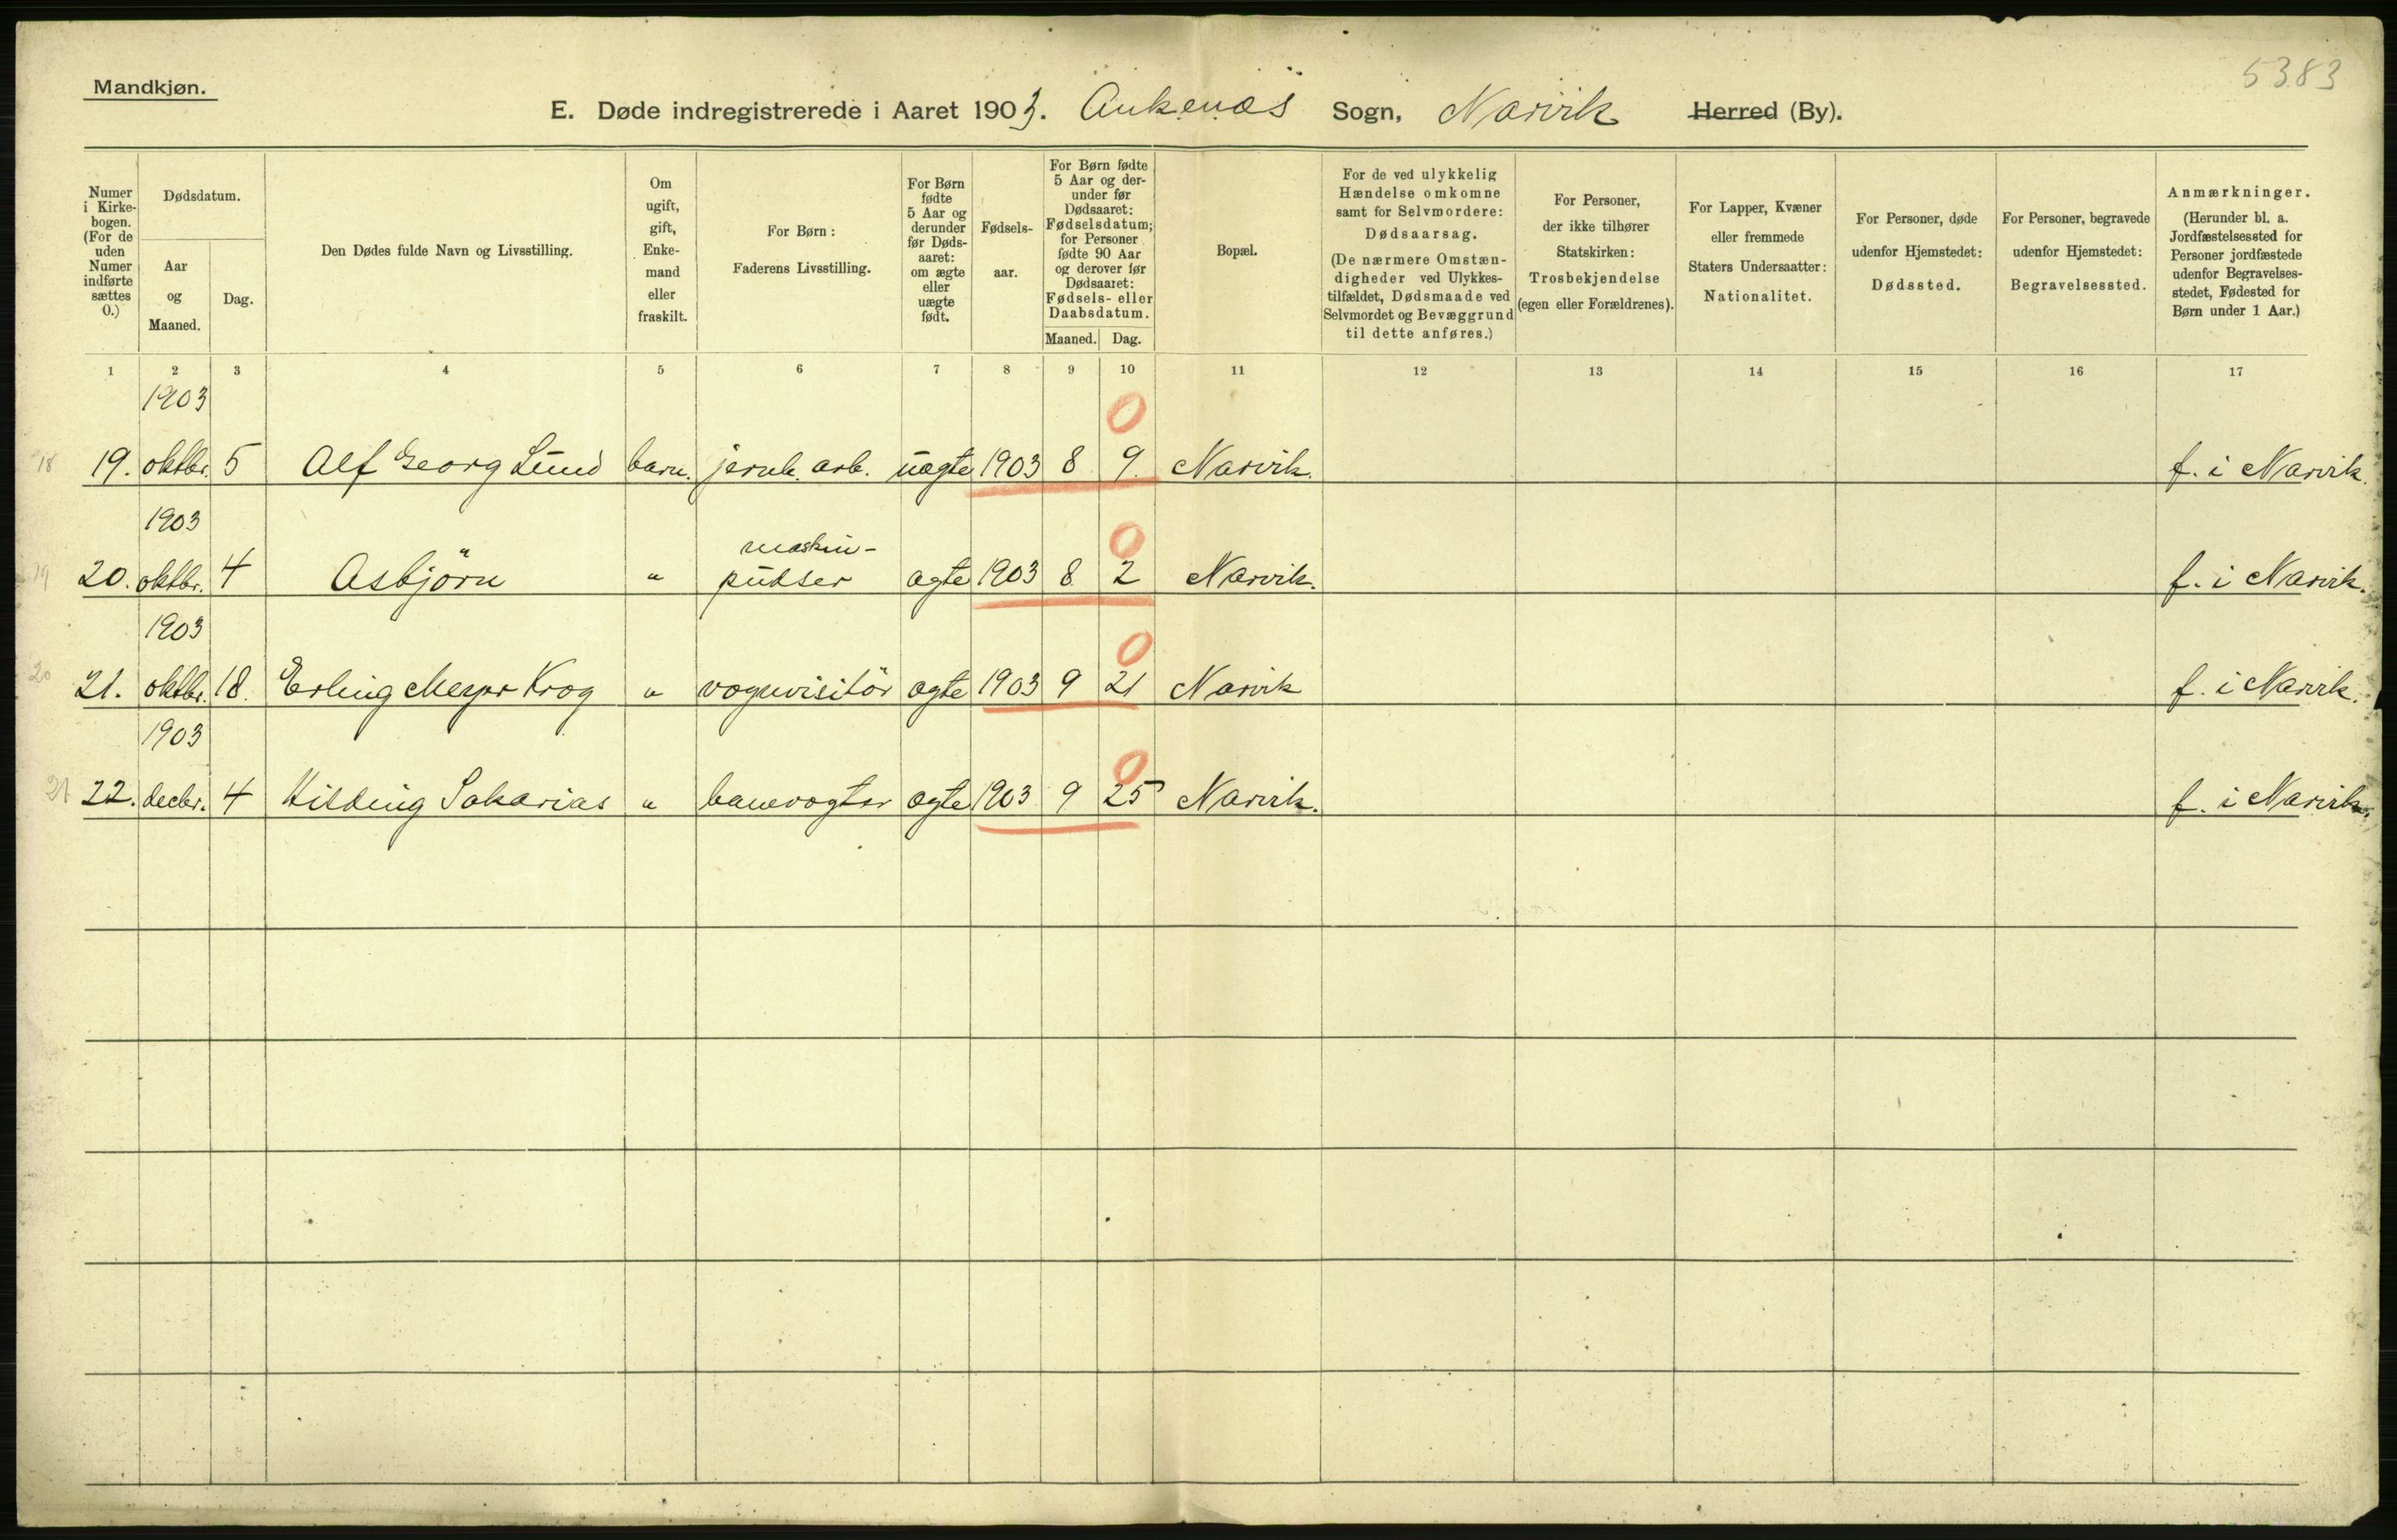 5383
Mandkjøn.
E. Døde indregistrerede i Aaret 1903. Ankenæs Sogn, Narvik Herred (By).
Numer i Kirke-bogen. (For de uden Numer indførte sættes 0.)
Dødsdatum.
Aar og Maaned.
Dag.
Den Dødes fulde Navn og Livsstilling.
Om ugift, gift, Enke-mand eller fraskilt.
For Børn: Faderens Livsstilling.
For Børn fødte 5 Aar og derunder før Døds-aaret: om ægte eller uægte født.
Fødsels-aar.
For Børn fødte 5 Aar og der-under før Dødsaaret: Fødselsdatum; for Personer fødte 90 Aar og derover før Dødsaaret: Fødsels- eller Daabsdatum.
Maaned. Dag.
Bopæl.
For de ved ulykkelig Hændelse omkomne samt for Selvmordere: Dødsaarsag. (De nærmere Omstæn-digheder ved Ulykkes-tilfældet, Dødsmaade ved Selvmordet og Bevæggrund til dette anføres.)
For Personer, der ikke tilhører Statskirken: Trosbekjendelse (egen eller Forældrenes).
For Lapper, Kvæner eller fremmede Staters Undersaatter: Nationalitet.
For Personer, døde udenfor Hjemstedet: Dødssted.
For Personer, begravede udenfor Hjemstedet: Begravelsessted.
Anmærkninger. (Herunder bl. a. Jordfæstelsessted for Personer jordfæstede udenfor Begravelses-stedet, Fødested for Børn under 1 Aar.)
1 2 3 4 5 6 7 8 9 10 11 12 13 14 15 16 17
1903 0
18 19. oktbr. 5 Alf Georg Lund barn. jernb. arb. uægte 1903 8 9. Narvik. f. i Narvik.
1903 maskin- 0
19 20. oktbr. 4 Asbjörn " pudser ægte 1903 8 2 Narvik. f. i Narvik.
1903 0
20 21. oktbr. 18. Erling Krog " vognvisitör ægte 1903 9 21 Narvik f. i Narvik.
1903 0
21 22. decbr. 4 Hilding Sakarias " banevogter ægte 1903 9 25 Narvik. f. i Narvik.